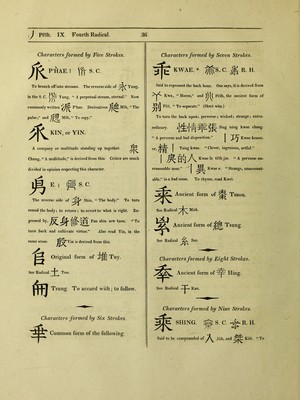 Piĕh. IX. Fourth Radical. 36
Characters formed by Five Strokes.
𠂢 P'HAE! S. C.
To branch off into streams. The reverse side of 永 Yung,
in the S. C. Yung, "A perpetual stream, eternal." Now
commonly written 派 Phae. Derivatives 脈 Mĭh, "The
pulse;" and Mih, "To espy."
KIN, or YIN.
A company or multitude standing up together.
Chung, "A multitude," is derived from this Critics are much
divided in opinion respecting this character.
E; S. C.
The reverse side of 身 Shin, "The body." To turn
round the body; to return; to revert to what is right. Ex-
pressed by, 反身修道 Fan shin sew taou. "To
turn back and cultivate virtue." Also read Yin, in the
same sense. 殷 Yin is derived from this
𠂤 Original form of 堆 Tuy.
See Radical 土 Too.
Tsung To accord with; to follow.
Characters formed by Six Strokes.
Common form of the following.
Characters formed by Seven Strokes.
乖 KWAE. S. C. R. H.
Said to represent the back bone. One says, it is derived from
Kwa, "Horns," and Pĭĕ, the ancient form of
別 Pĭĕ, "To separate." (Heri why.)
To turn the back upon; perverse; wicked; strange; extra-
ordinary. 性情乖張 Sing tsing kwae chang
"A perverse and bad disposition." 丨巧 Kwae keaou,
or, 精丨 Tsing kwae. "Clever, ingenious, artful."
丨戾的人 Kwae le tĕĭh jin. "A perverse un-
reasonable man." 丨異 Kwae e. "Strange, unaccount-
able." in a bad sense. To rhyme, read Kwei
Ancient form of 棗 Tsaou.
See Radical 木 Mŭh.
Ancient form of 總 Tsung.
See Radical 糸 See.
Characters formed by Eight Strokes.
Ancient form of 幸 Hing.
See Radical 干 Kan.
Characters formed by Nine Strokes.
乘 SHING. S. C. R. H.
Said to be compounded of 入 Jŭh, and 桀 Kĕĕ. "To